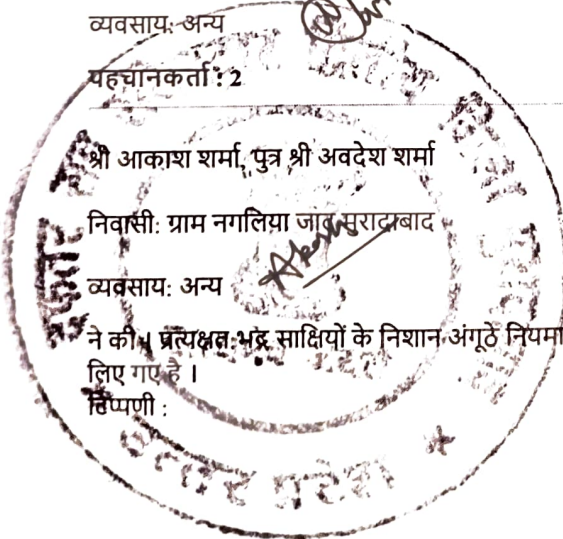 व्यवसाय: अन्य
पहचानकर्ता : 2
श्री आकाश शर्मा, पुत्र श्री अवदेश शर्मा
निवासी: ग्राम नगलिया जाट मुरादाबाद
व्यवसाय: अन्य
ने की । प्रत्यक्षत:भद्र साक्षियों के निशान अंगूठे नियमा
लिए गए है ।
टिप्पणी :
उत्तर प्रदेश *